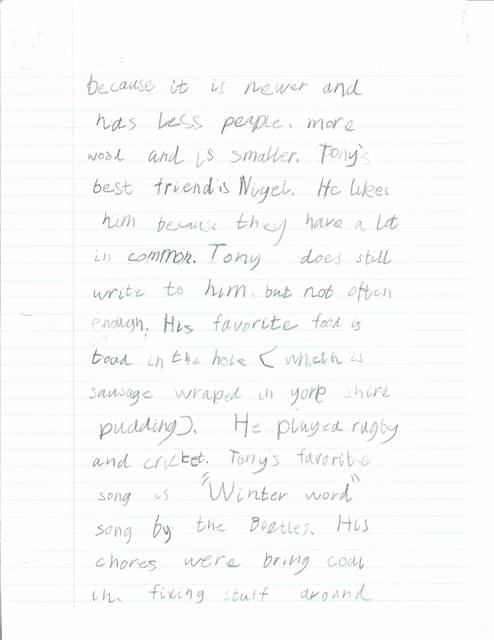 because it is newer and
has less people. more
wood and is smaller. Tony's
best friend is Nigel. He likes
him because they have a lot
in common. Tony does still
write to him, but not often
enough. His favorite food is
toad in the hole (which is
sausage wraped in york shire
pudding). He played rugby
and cricket. Tony's favorite
song is "Winter word"
song by the Beetles. His
chores were bring coal
in. fixing stuff around